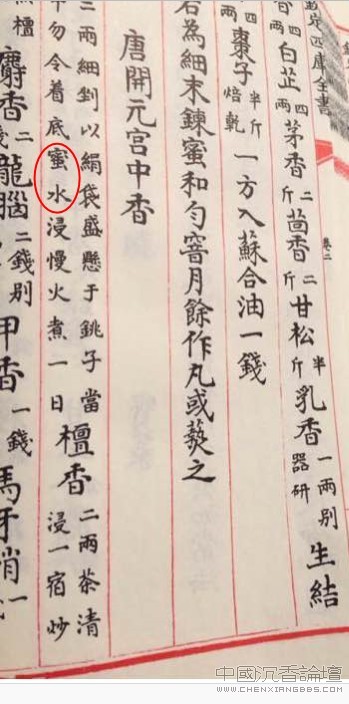 四庫全書
卷二
白芷四兩茅香二斤茴香二斤甘松半斤乳香一兩別器研生結
棗子半斤焙乾一方入蘇合油一錢
右為細末鍊蜜和勻窨月餘作丸或爇之
唐開元宮中香
二兩細剉以絹袋盛懸于銚子當
中勿令着底蜜水浸慢火煮一日檀香二兩茶清浸一宿炒
麝香二龍腦二錢別甲香一錢馬牙硝一
中國沉香論壇
WWW.CHENXIANGBBS.COM